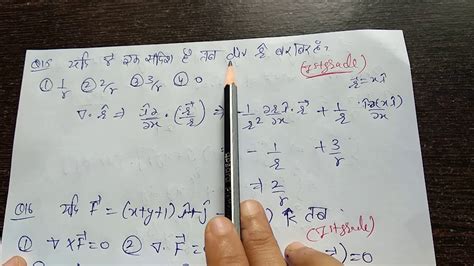 Q15 यदि r̂ एक सदिश है तब div r̂ बराबर है?
(Ist grade)
① 1/r ② 2/r ③ 3/r ④ 0
r⃗ = xî
∇·r̂ ⇒ î∂/∂x · (r⃗/r) ⇒ -1/r² ∂r/∂x î · r⃗ + 1/r · î∂(xî)/∂x
- 1/r + 3/r
⇒ 2/r
Q16 यदि F⃗ = (x+y+1) î+ĵ - ) k̂ तब
(Ist grade)
① ∇×F⃗=0 ② ∇·F⃗ = r⃗)=0